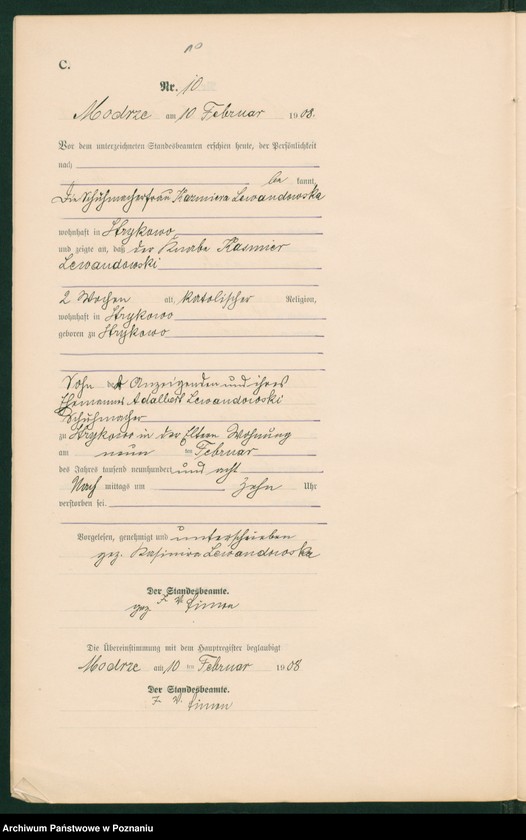 C.
Nr. 10
Modrze am 10 Februar 1908.
Vor dem unterzeichneten Standesbeamten erschien heute, der Persönlichkeit
nach
be kannt,
Die Schuhmacherfrau Kazmiera Lewandowska
wohnhaft in Strykowo
und zeigte an, daß der Knabe Kasmier
Lewandowski
2 Wochen alt, katolischer Religion,
wohnhaft in Strykowo
geboren zu Strykowo
Sohn der Anzeigenden und ihres
Ehemannes Adalbert Lewandowski
Schuhmacher
zu Strykowo in der Eltern Wohnung
am neun ten Februar
des Jahres tausend neunhundert und acht
Nach mittags um zehn Uhr
verstorben sei.
Vorgelesen, genehmigt und unterschrieben
gez. Kasimira Lewandowska
Der Standesbeamte.
gez J. V. Simon
Die Übereinstimmung mit dem Hauptregister beglaubigt
Modrze am 10 ten Februar 1908
Der Standesbeamte.
J. V. Simon
Archiwum Państwowe w Poznaniu